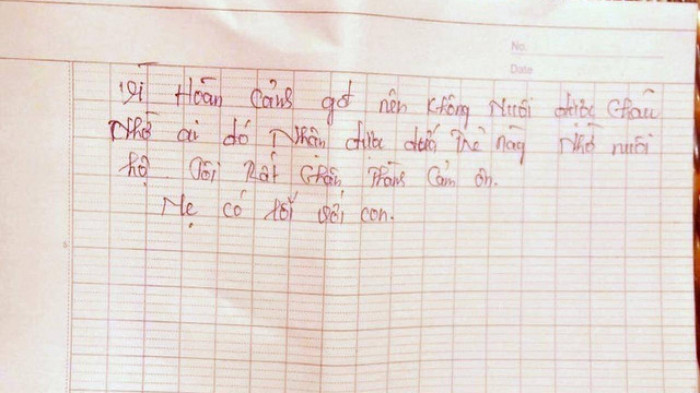 No.
Date
Vì Hoàn Cảnh gđ nên không Nuôi được Cháu
Nhờ ai đó Nhận được đứa trẻ này Nhờ nuôi
hộ. Tôi Rất Chân thành Cảm ơn.
Mẹ có lỗi với con.